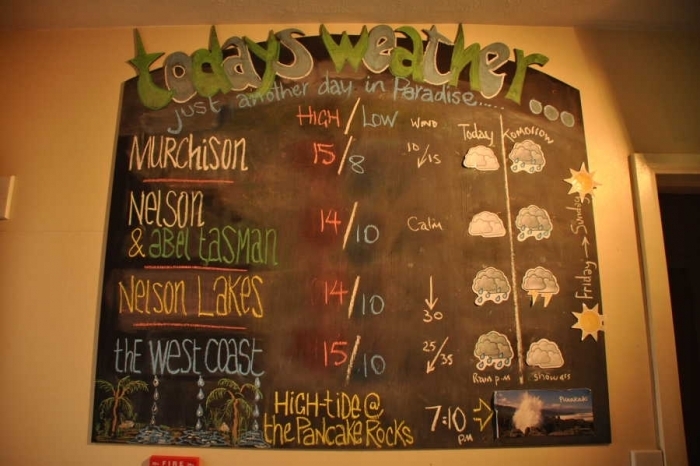 todays weather...
just another day in Paradise.....
HIGH/LOW WIND Today TOMORROW
MURCHISON 15/8 10/15
NELSON
& abel tasman 14/10 Calm
NELSON LAKES 14/10 30
the WEST COAST 15/10 25/35
Rain p.m showers
Friday → Sunday
HIGH-tiDE @
the PANCAKE ROCKS
7:10 PM
Punakaiki
FIRE